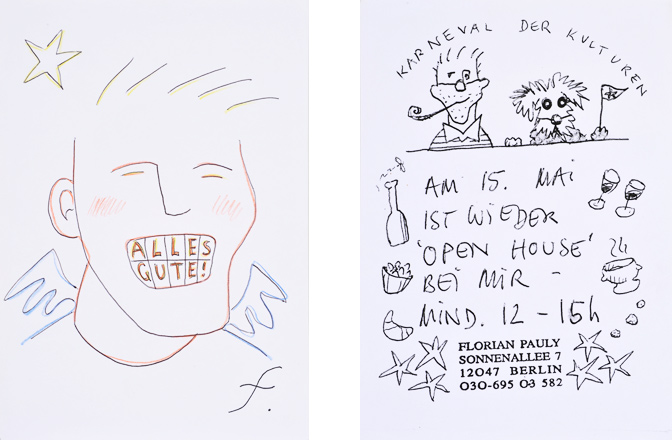 ALLES
GUTE!
f.
KARNEVAL DER KULTUREN
AM 15. MAI
IST WIEDER
'OPEN HOUSE'
BEI MIR –
MIND. 12 – 15h
FLORIAN PAULY
SONNENALLEE 7
12047 BERLIN
030-695 03 582